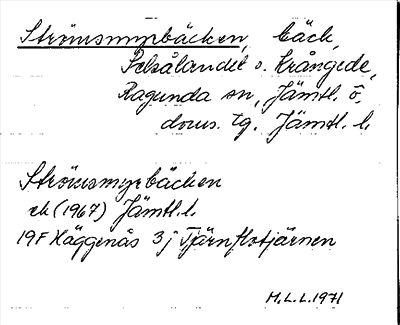 Strömsmyrbäcken, bäck,
Selsålandet o. Krångede,
Ragunda sn, Jämtl. ö.
doms. tg. Jämtl. l.
Strömsmyrbäcken
ek (1967) Jämtl. l.
19F Häggenås 3j Tjärnflotjärnen
M.L.L. 1971